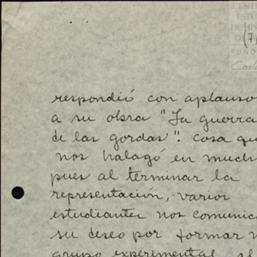 (7
respondió con aplauso
a su obra "La guerra
de las gordas". Cosa qu
nos halagó en much
pues al terminar la
representación, varios
estudiantes nos comunica
su deseo por formar u
grupo experimental, el